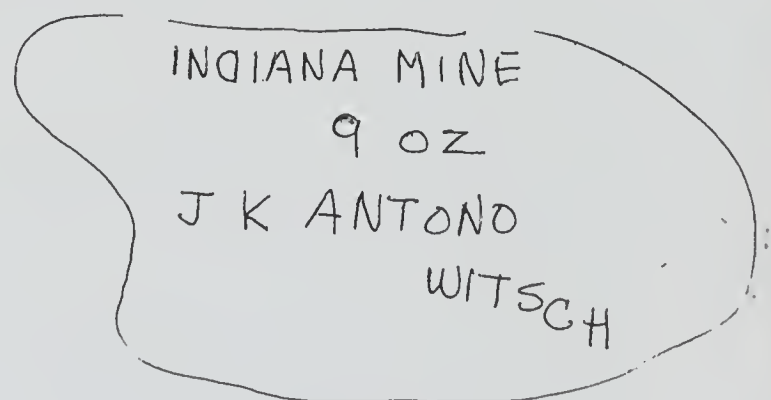 INDIANA MINE
9 OZ
J K ANTONO
WITSCH